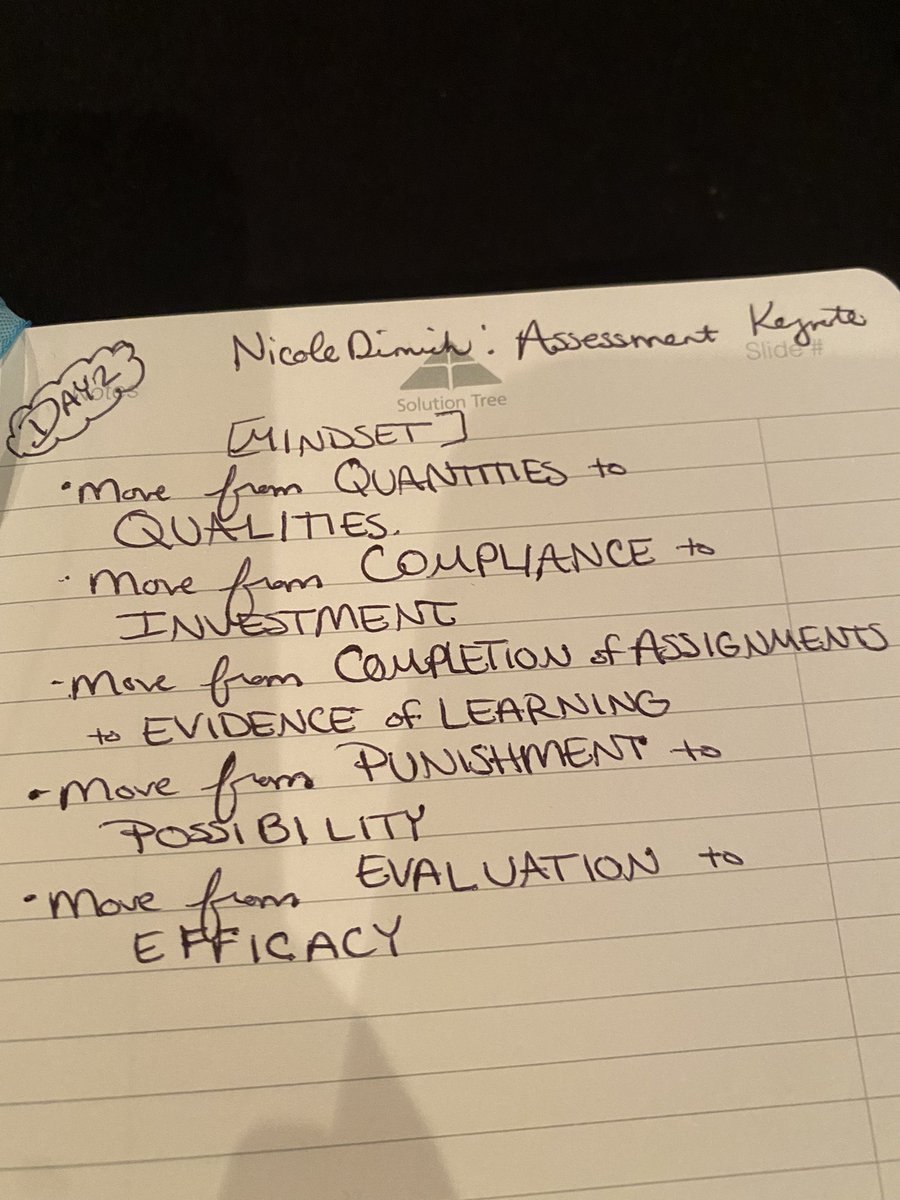 Nicole Dimich: Assessment Keynote
Slide #
DAY 2
Notes
Solution Tree
[MINDSET]
• Move from QUANTITIES to
QUALITIES.
· Move from COMPLIANCE to
INVESTMENT
- Move from COMPLETION of ASSIGNMENTS
to EVIDENCE of LEARNING
• Move from PUNISHMENT to
POSSIBILITY
• Move from EVALUATION to
EFFICACY